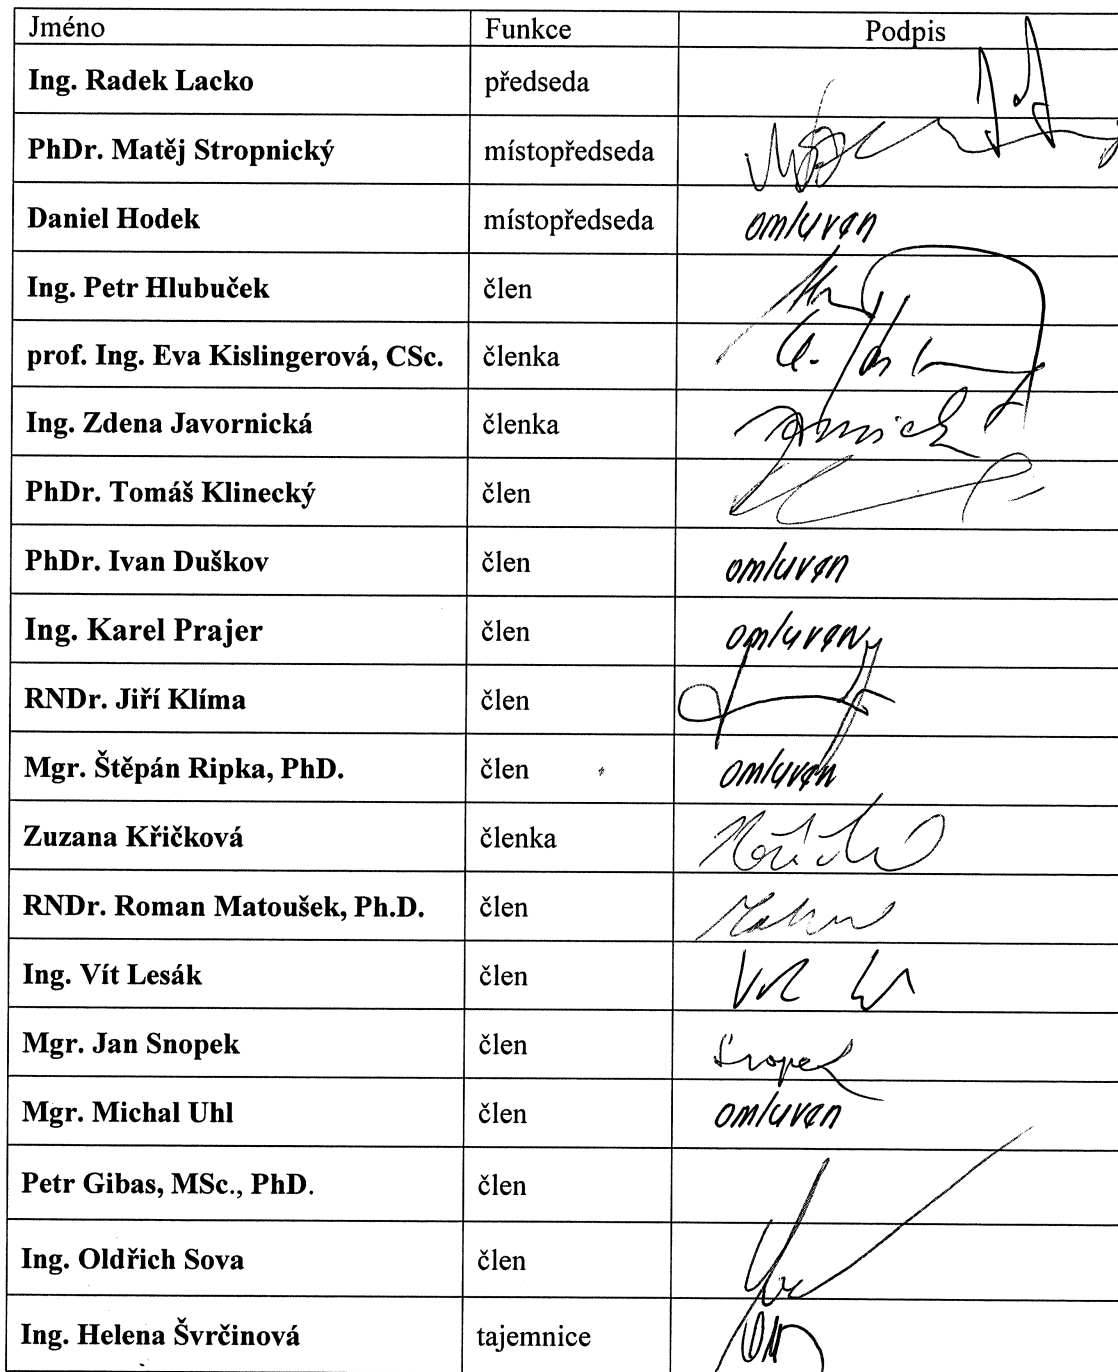 Jméno Funkce Podpis
Ing. Radek Lacko předseda
PhDr. Matěj Stropnický místopředseda
Daniel Hodek místopředseda omluven
Ing. Petr Hlubuček člen
prof. Ing. Eva Kislingerová, CSc. členka
Ing. Zdena Javornická členka
PhDr. Tomáš Klinecký člen
PhDr. Ivan Duškov člen omluven
Ing. Karel Prajer člen omluven
RNDr. Jiří Klíma člen
Mgr. Štěpán Ripka, PhD. člen omluven
Zuzana Křičková členka
RNDr. Roman Matoušek, Ph.D. člen
Ing. Vít Lesák člen
Mgr. Jan Snopek člen Snopek
Mgr. Michal Uhl člen omluven
Petr Gibas, MSc., PhD. člen
Ing. Oldřich Sova člen
Ing. Helena Švrčinová tajemnice